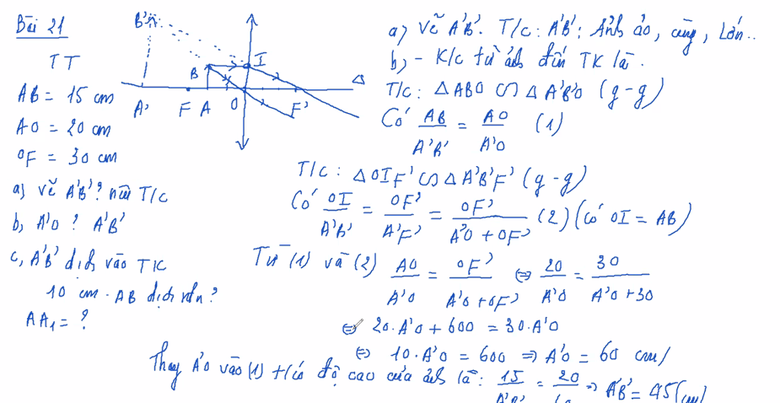 Bài 21
TT
AB = 15 cm
AO = 20 cm
OF = 30 cm
a) vẽ A'B'? nêu T/c
b, A'O ? A'B'
c, A'B' dịch vào TK
10 cm. AB dịch ntn?
AA₁ = ?
B' B I Δ
A' F A O F'
a) Vẽ A'B'. T/c: A'B': Ảnh ảo, cùng, Lớn..
b, - K/c từ ảnh đến TK là.
T/c: Δ ABO ∽ Δ A'B'O (g-g)
Có AB/A'B' = AO/A'O (1)
T/c: Δ OIF' ∽ Δ A'B'F' (g-g)
Có OI/A'B' = OF'/A'F' = OF'/A'O + OF' (2) (có OI = AB)
Từ (1) và (2) AO/A'O = OF'/A'O + OF' ⇔ 20/A'O = 30/A'O + 30
⇔ 20. A'O + 600 = 30. A'O
⇔ 10. A'O = 600 ⇒ A'O = 60 cm/
Thay A'O vào (1) độ cao của ảnh là: 15/A'B' = 20/60 ⇒ A'B' = 45 (cm)